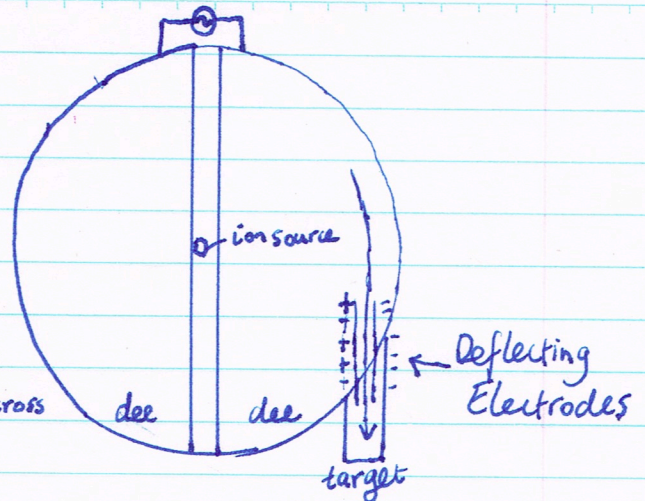 ion source
Deflecting
Electrodes
ross
dee
dee
target